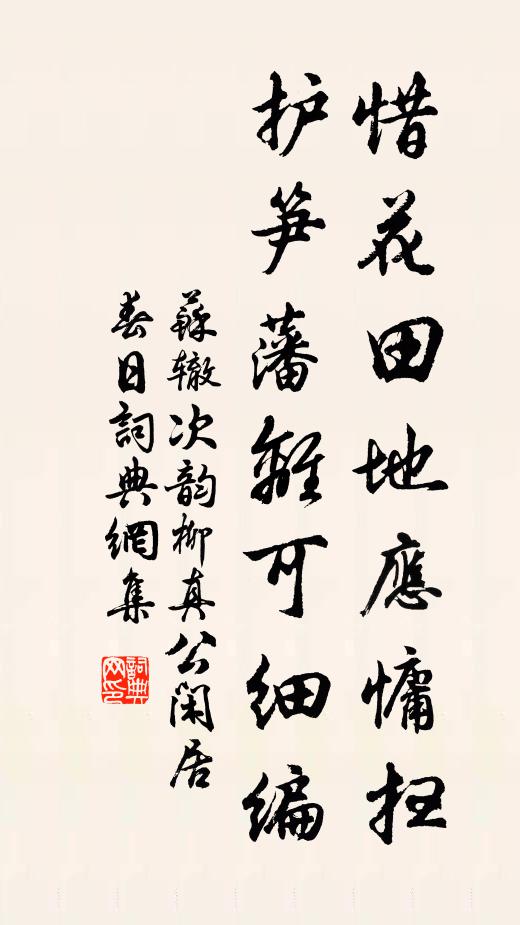 惜花田地應慵扫
护笋藩離可细编
蘇辙次韵柳真公闲居
春日詞典網集
詞典网印